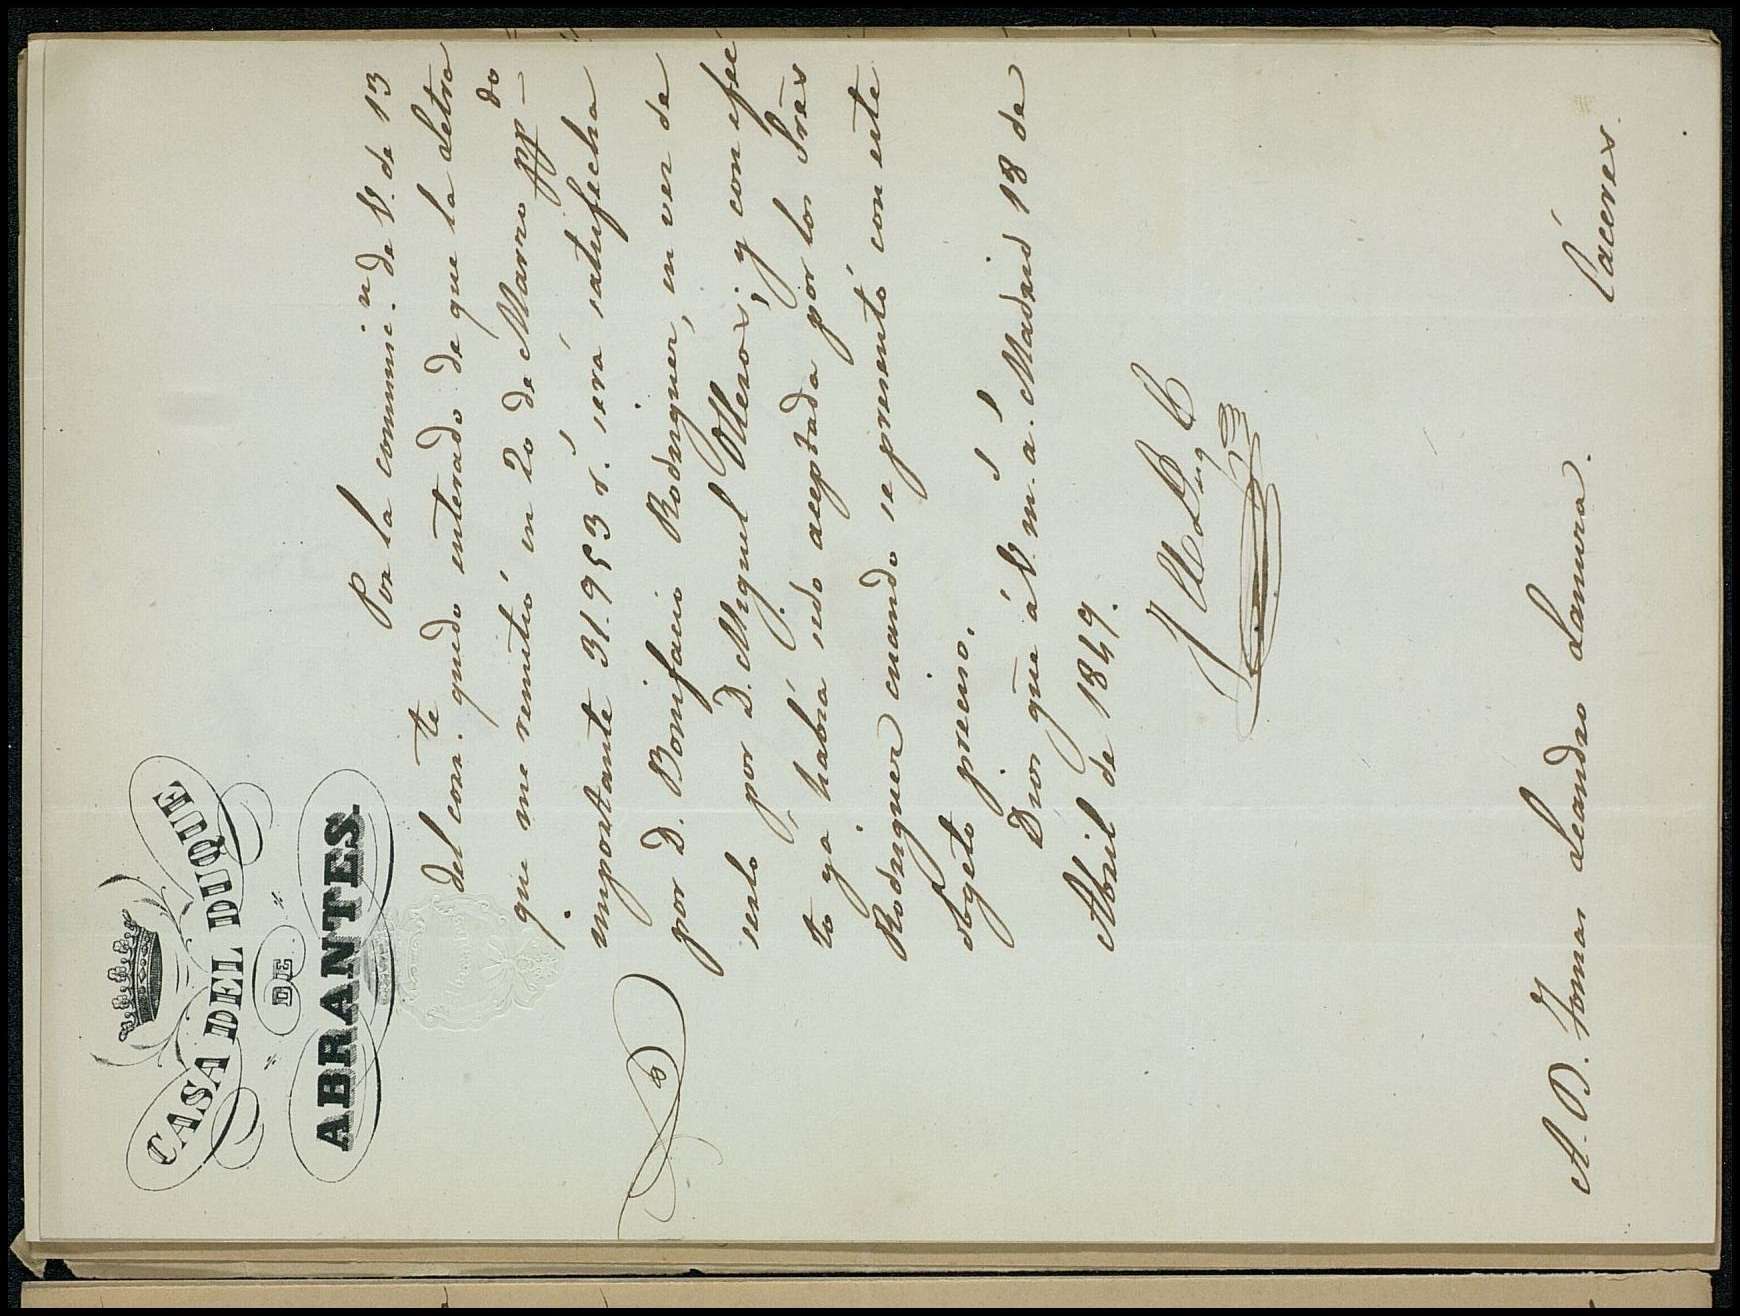 CASA DEL DUQUE
DE
ABRANTES.
Por la comunic.n de V. de 13
del corr.te quedo enterado de que la Letra
que me remitió en 20 de Marzo pp.do
importante 31.953 r.s será satisfecha
por D. Bonifacio Rodriguez, en vez de
serlo por D. Miguel Olleros; y con efec
to ya habrá sido aceptada por los Sres
Rodriguez cuando se presentó con este
objeto preciso.
Dios gue á V. m.s a.s Madrid 18 de
Abril de 1849.
A. D. Tomas Leandro Lamura.
Cáceres.